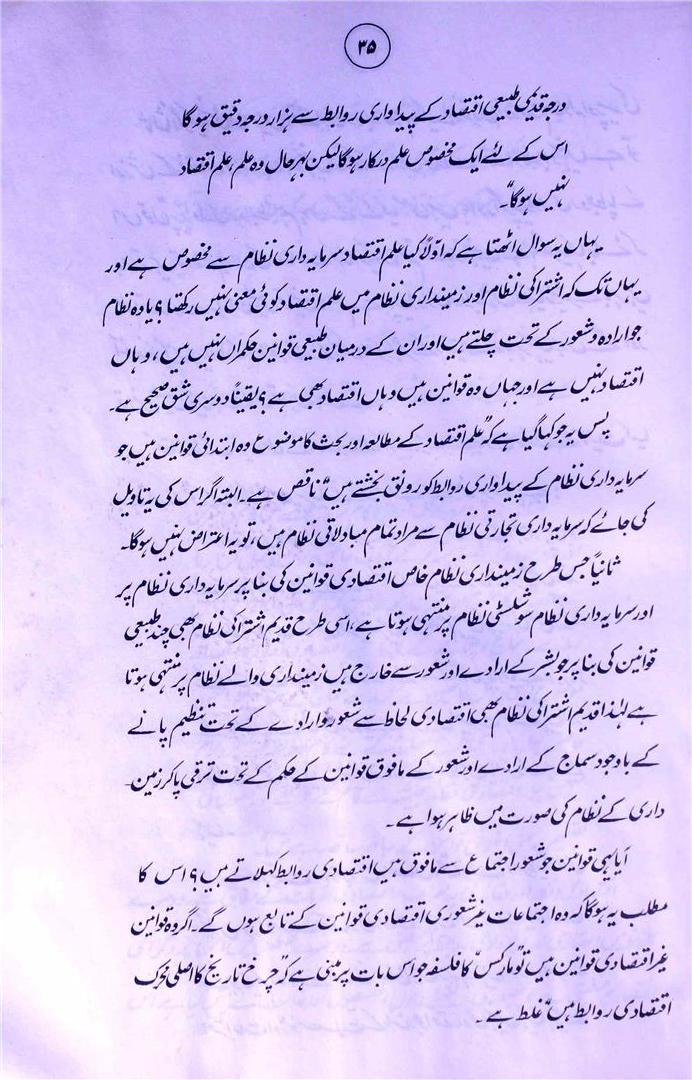 ۳۵
درجہ قدیمی طبیعی اقتصاد کے پیداواری روابط سے ہزار درجہ دقیق ہوگا
اس کے لئے ایک مخصوص علم درکار ہوگا لیکن بہرحال وہ علم، علم اقتصاد
نہیں ہوگا"۔
یہاں یہ سوال اٹھتا ہے کہ اوّلاً کیا علم اقتصاد سرمایہ داری نظام سے مخصوص ہے اور
یہاں تک کہ اشتراکی نظام اور زمینداری نظام میں علم اقتصاد کوئی معنی نہیں رکھتا؟ یا وہ نظام
جو ارادہ و شعور کے تحت چلتے ہیں اور ان کے درمیان طبیعی قوانین حکمراں نہیں ہیں، وہاں
اقتصاد نہیں ہے اور جہاں وہ قوانین ہیں وہاں اقتصاد بھی ہے؟ یقیناً دوسری شق صحیح ہے۔
پس یہ جو کہا گیا ہے کہ "علم اقتصاد کے مطالعہ اور بحث کا موضوع وہ ابتدائی قوانین ہیں جو
سرمایہ داری نظام کے پیداواری روابط کو رونق بخشتے ہیں" ناقص ہے۔ البتہ اگر اس کی یہ تاویل
کی جائے کہ سرمایہ داری تجارتی نظام سے مراد تمام مبادلاتی نظام ہیں، تو یہ اعتراض نہیں ہوگا۔
ثانیاً جس طرح زمینداری نظام خاص اقتصادی قوانین کی بنا پر سرمایہ داری نظام پر
اور سرمایہ داری نظام سوشلسٹی نظام پر منتہی ہوتا ہے، اسی طرح قدیم اشتراکی نظام بھی چند طبیعی
قوانین کی بنا پر جو بشر کے ارادے اور شعور سے خارج ہیں زمینداری والے نظام پر منتہی ہوتا
ہے لہٰذا قدیم اشتراکی نظام بھی اقتصادی لحاظ سے شعور و ارادے کے تحت تنظیم پانے
کے باوجود سماج کے ارادے اور شعور کے مافوق قوانین کے حکم کے تحت ترقی پا کر زمین۔
داری کے نظام کی صورت میں ظاہر ہوا ہے۔
آیا یہی قوانین جو شعور اجتماع سے مافوق ہیں اقتصادی روابط کہلاتے ہیں؟ اس کا
مطلب یہ ہوگا کہ وہ اجتماعات غیر شعوری اقتصادی قوانین کے تابع ہوں گے۔ اگر وہ قوانین
غیر اقتصادی قوانین ہیں تو "مارکس" کا فلسفہ جو اس بات پر مبنی ہے کہ "چرخ تاریخ کا اصلی محرک
اقتصادی روابط ہیں" غلط ہے۔